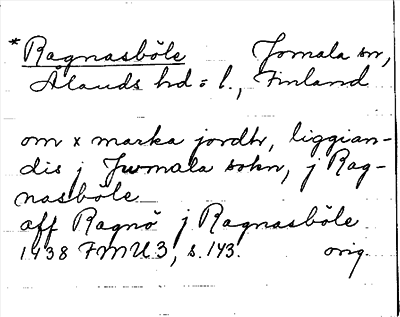 *Ragnasböle Jomala sn,
Ålands hd o l., Finland
om x marka jordh, liggian-
dis j Jwmala sokn, j Rag-
nasböle
aff Ragnö j Ragnasböle
1438 FMU3, s. 143. orig.